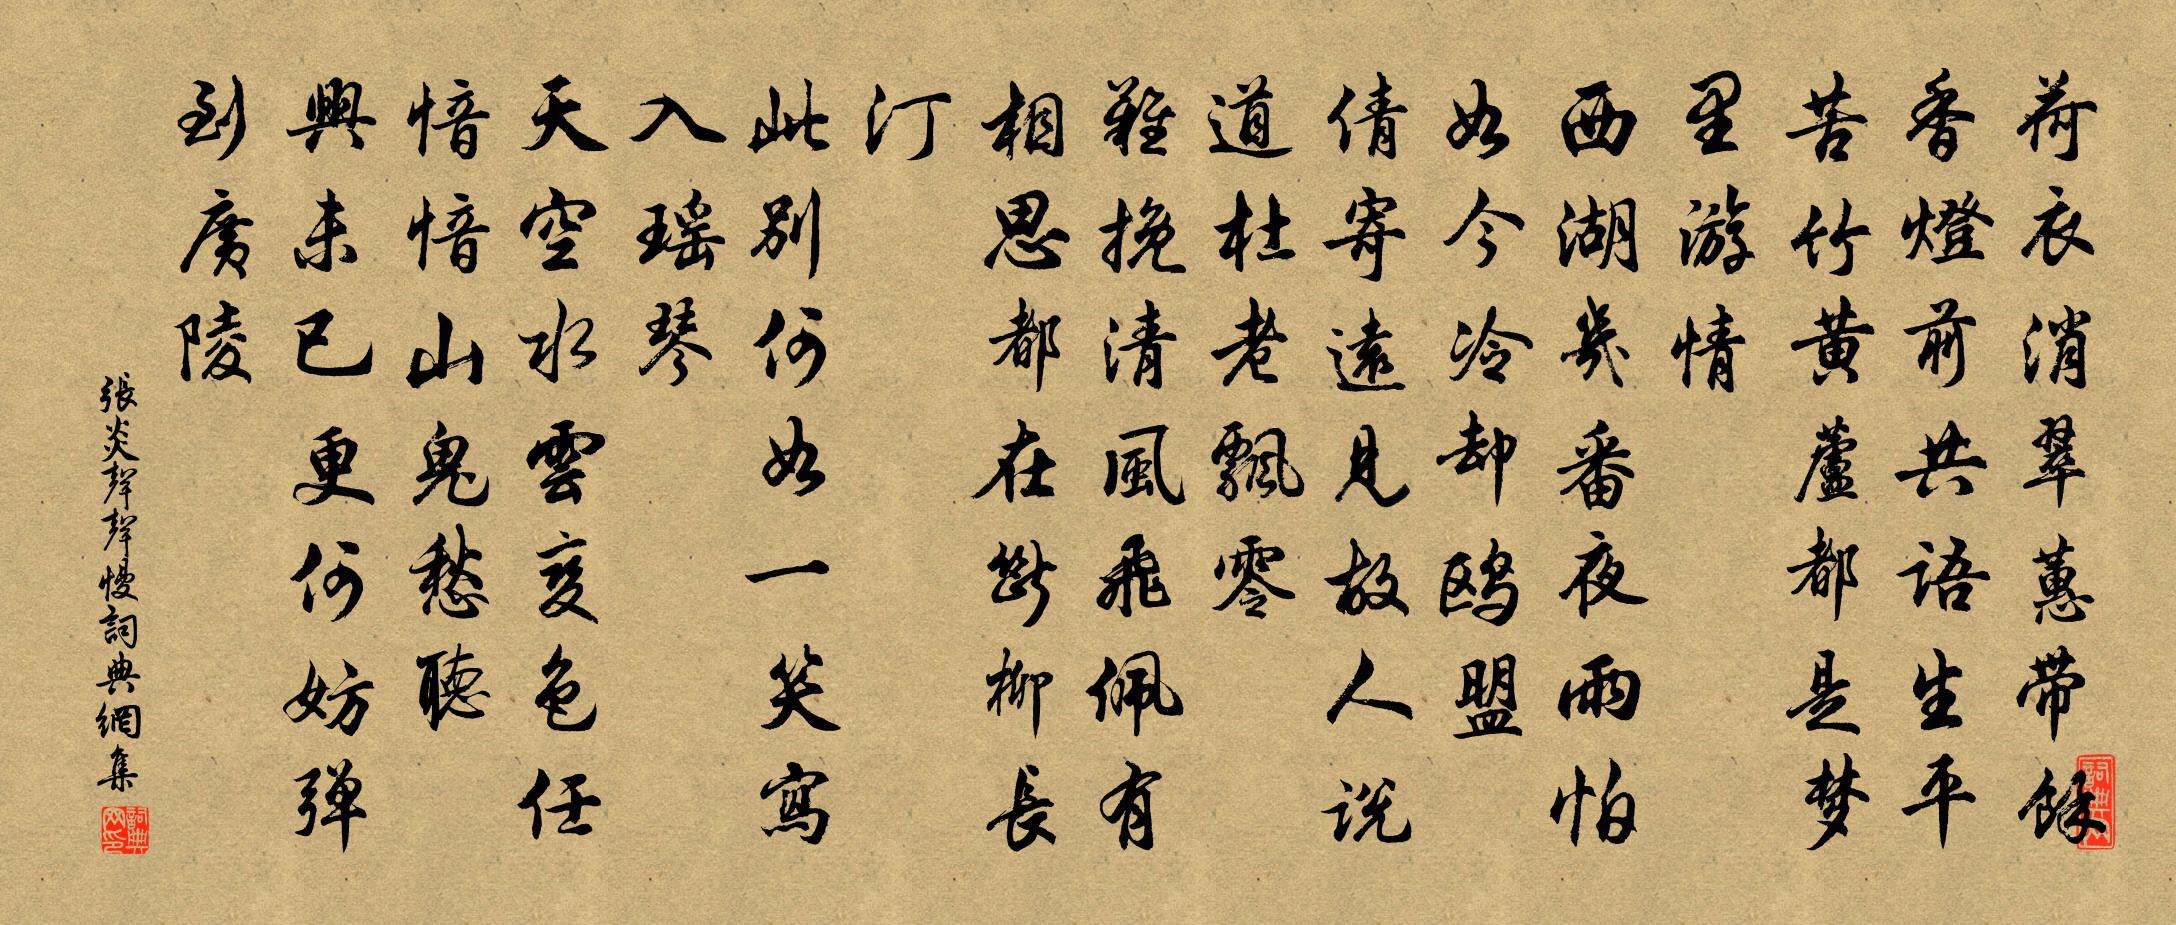 荷衣消翠蕙带餘
香燈前共语生平
苦竹黄蘆都是梦
里游情
西湖幾番夜雨怕
如今冷却鸥盟
倩寄遠见故人说
道杜老飄零
難挽清風飛佩有
相思都在断柳長
汀
此别何如一笑寫
入瑶琴
天空水雲变色任
愔愔山鬼愁聽
興未已更何妨弹
到廣陵
張炎聲聲慢詞典網集
詞典网
詞典网印